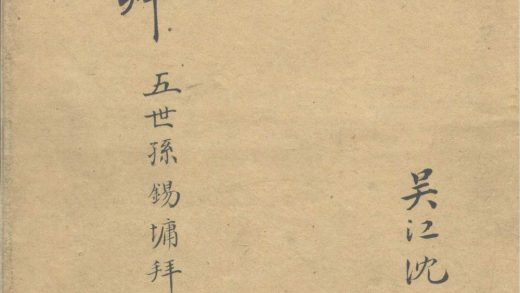 吴江沈
五世孫錫墉拜